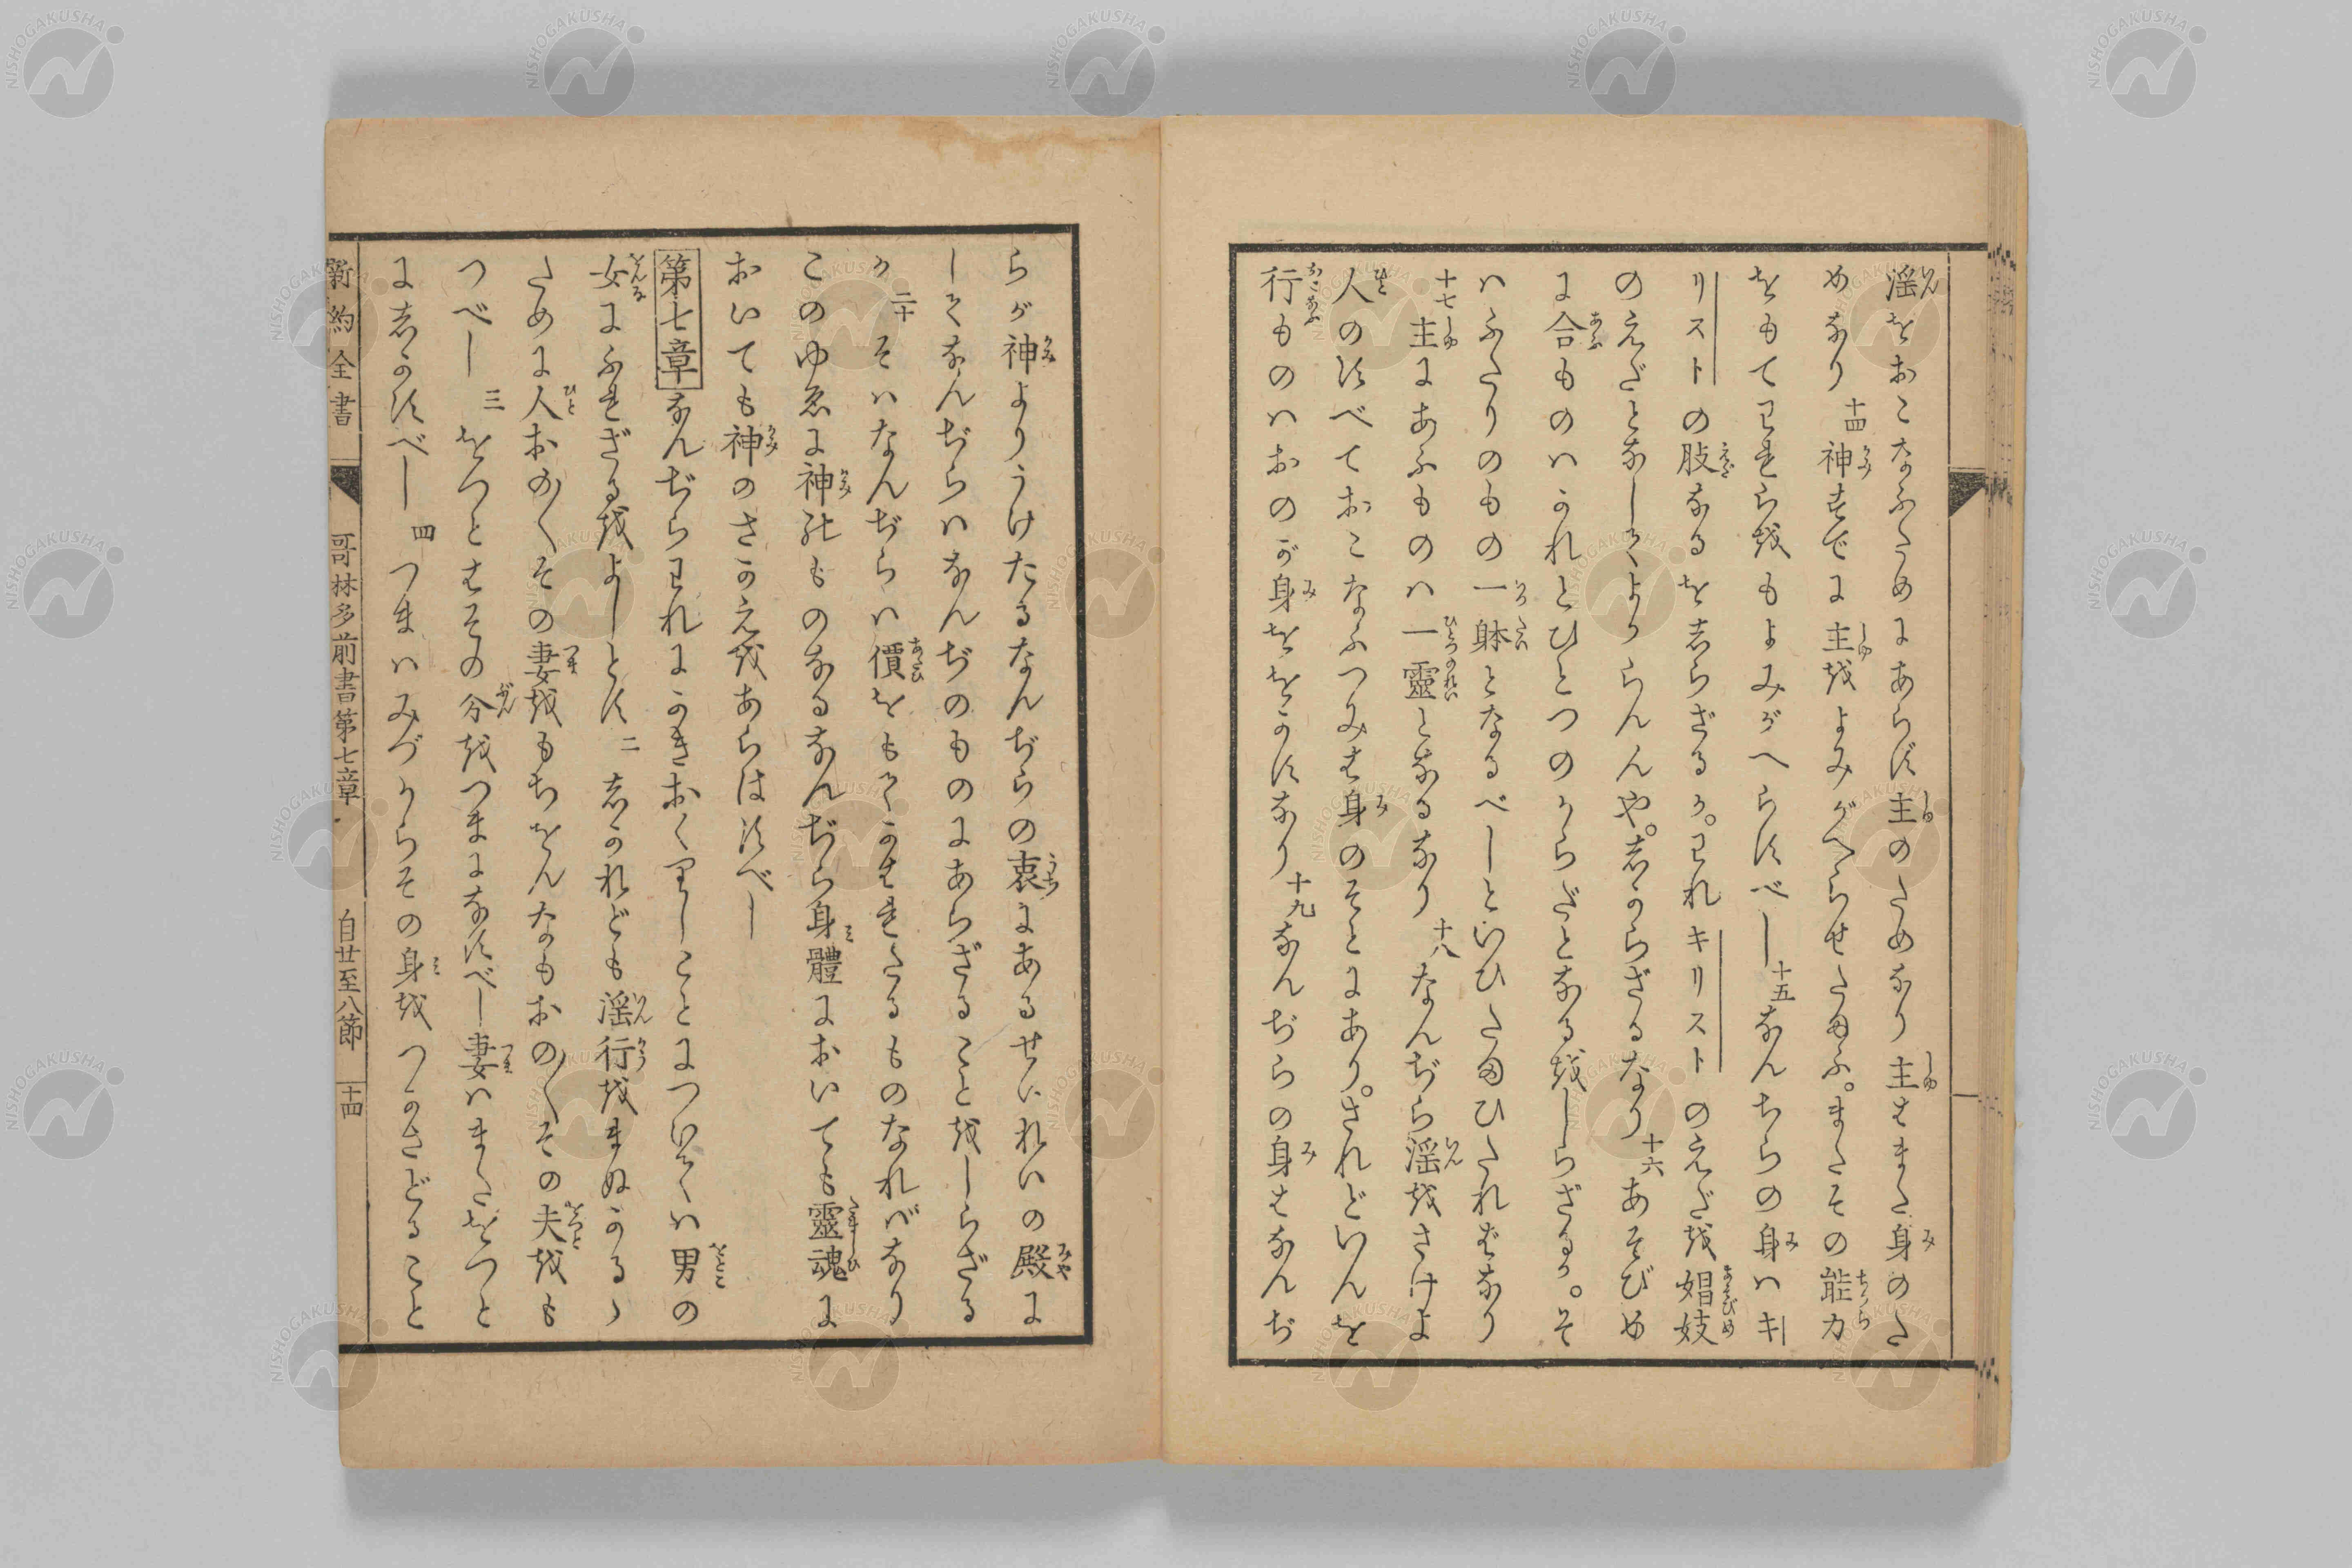 淫をおこなふためにあらず主のためなり主はまた身のた
めなり十四神すでに主をよみがへらせたまふ。またその能力
をもてわれらをもよみがへらすべし十五なんちらの身ハキ
リストの肢なるをしらざるか。われキリストのえだを娼妓
のえだとなしてよからんや。しからざるなり十六あそびめ
に合ものハかれとひとつのからだとなるをしらざるか。そ
ハふたりのもの一躰となるべしといひたまひたればなり
十七主にあふものハ一靈となるなり十八なんぢら淫をさけよ
人のすべておこなふつみは身のそとにあり。されどいんを
行ものハおのが身ををかすなり十九なんぢらの身はなんぢ
らが神よりうけたるなんぢらの衷にあるせいれいの殿に
してなんぢらハなんぢのものにあらざることをしらざる
か二十そハなんぢらハ價をもてかはれたるものなれバなり
このゆゑに神のものなるなんぢら身體においても靈魂に
おいても神のさかえをあらはすべし
第七章なんぢらわれにかきおくりしことについてハ男の
女にふれざるをよしとす二しかれども淫行をまぬかるゝ
ために人おの〱その妻をもちをんなもおの〱その夫をも
つべし三をつとはその分をつまになすべし妻ハまたをつと
にしかすべし四つまハみづからその身をつかさどること
新約全書 哥林多前書第七章 自廿至八節 十四